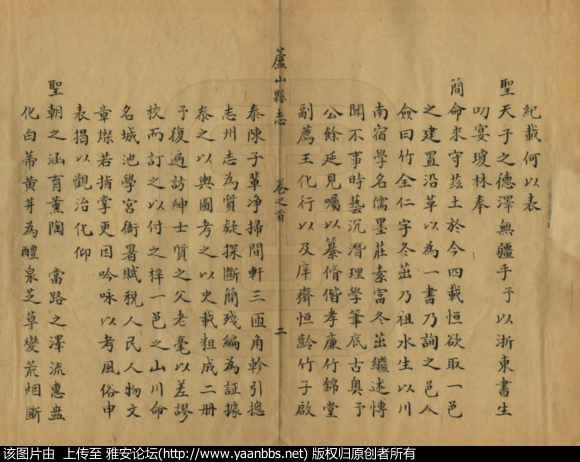 紀載何以表
聖天子之德澤無疆乎予以浙東書生
叨宴瓊林奉
簡命來守茲土於今四載恒欲取一邑
之建置沿革以為一書乃詢之邑人
僉曰竹全仁字冬茁乃祖水生以川
南宿學名儒墨莊素富冬茁繼述博
聞不事時藝沉潛理學筆底古奧予
公餘延見囑以纂脩偕孝廉竹錦堂
副薦王化行以及庠齋恒齡竹子啟
蘆山縣志
卷之首
二
泰陳子輩净掃閒軒三
角軫引摠
志州志為質疑探斷簡殘編為証據
泰之以輿圖考之以史載粗成二册
予復遍訪紳士質之父老毫以差謬
校而訂之以付之梓一邑之山川命
名城池學宮衙署賦税人民人物文
章燦若指掌更因吟咏以考風俗申
表揭以觀治化仰
聖朝之涵育薰陶 當路之澤流惠
化白茅黄芽為醴泉芝草變荒烟斷
该图片由 上传至 雅安论坛(http://www.yaanbbs.net) 版权归原创者所有